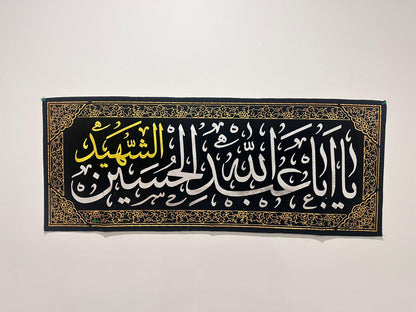 يا اباعبد الله الحسين الشهيد